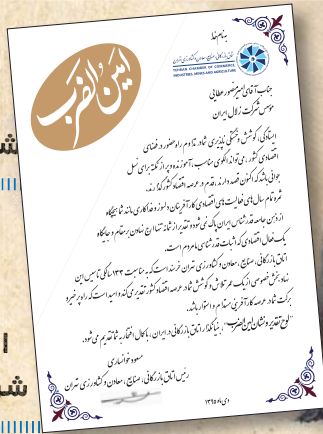 به نام خدا
امین الضرب
اتاق بازرگانی، صنایع، معادن و کشاورزی تهران
TEHRAN CHAMBER OF COMMERCE,
INDUSTRIES, MINES AND AGRICULTURE
جناب آقای منصور عطایی
موسس شرکت زلال ایران
ایستادگی، کوشش و خستگی ناپذیری شما در تداوم راه حضور در فضای
اقتصادی کشور، می‌تواند الگوی مناسب، آموزنده و پر از نکته برای نسل
جوانی باشد که اکنون قصد دارند، قدم در عرصه اقتصاد کشور گذارند.
ثمره تمام سال‌های فعالیت‌های اقتصادی کارآفرینان دلسوز و فداکاری مانند شما هیچگاه
از ذهن جامعه قدرشناس ایران پاک نمی‌شود و تقدیر از شما نه تنها ارج نهادن بر مقام و جایگاه
یک فعال اقتصادی که اثبات قدرشناسی ما مردم است.
اتاق بازرگانی، صنایع، معادن و کشاورزی تهران خرسند است که به مناسبت ۱۳۳ سالگی تاسیس این
نهاد بخش خصوصی از یک عمر تلاش و کوشش شما در عرصه اقتصاد کشور تقدیر می‌کند و امید است که راه پر ثمر و
برکت شما در عرصه کارآفرینی مستدام و استوار باشد.
"لوح تقدیر و نشان امین الضرب"، بنیانگذار اتاق بازرگانی در ایران، با کمال افتخار به شما تقدیم می‌شود.
مسعود خوانساری
رئیس اتاق بازرگانی، صنایع، معادن و کشاورزی تهران
دی ماه ۱۳۹۵